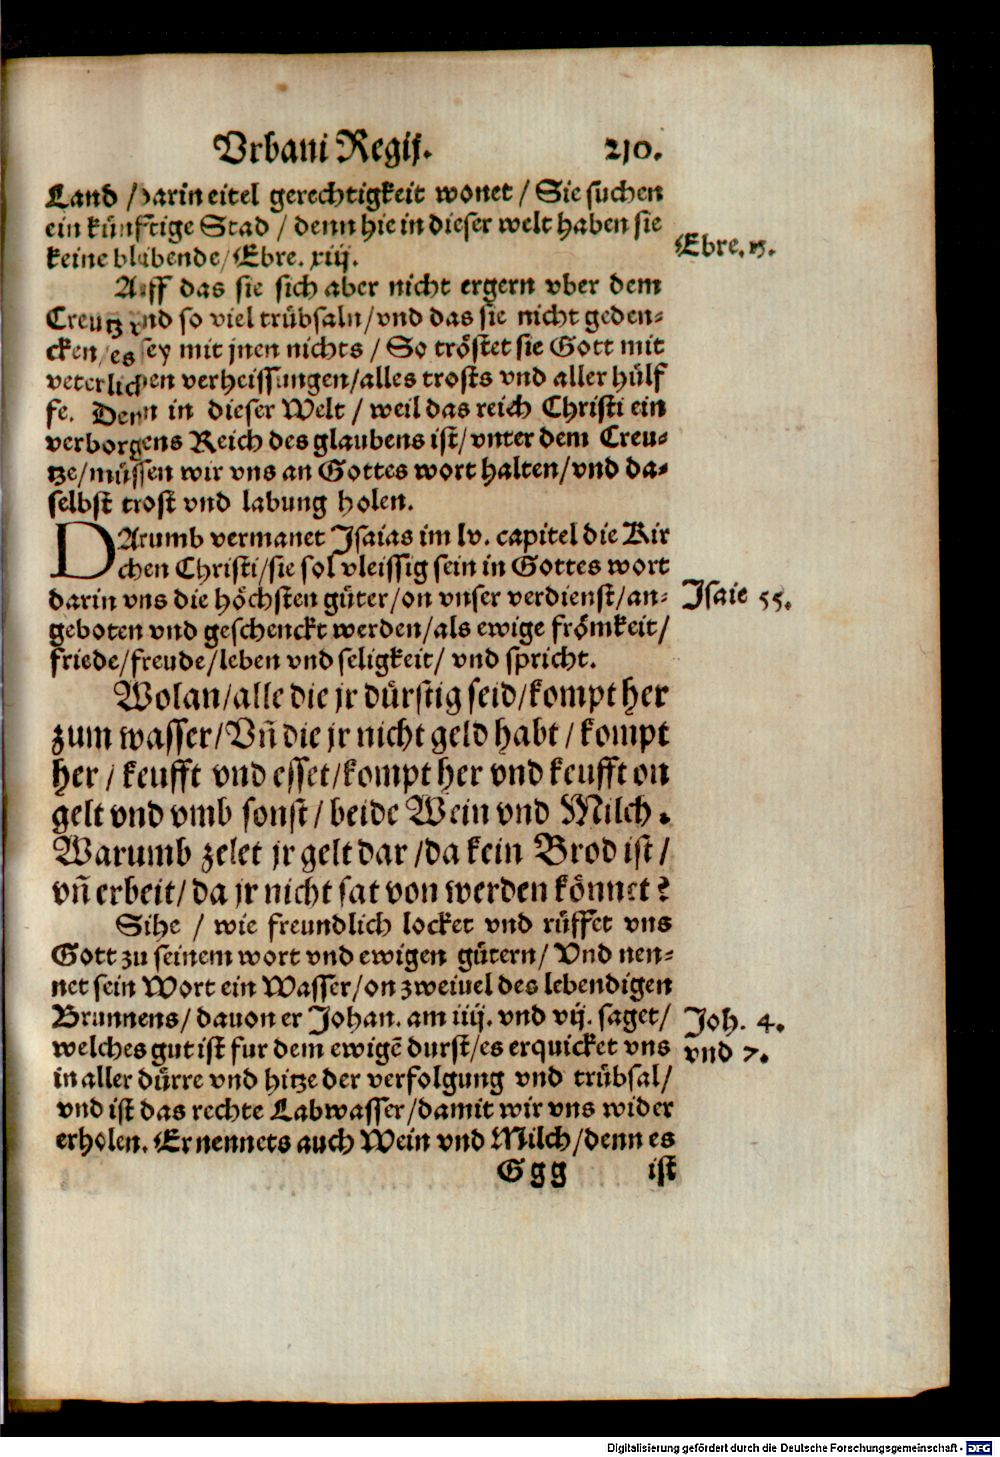 Vrbani Regij. 210.
Land / darin eitel gerechtigkeit wonet / Sie suchen
ein künfftige Stad / denn hie in dieser welt haben sie
keine bleibende / Ebre. xiij.
Ebre. 13.
Auff das sie sich aber nicht ergern vber dem
Creutz vnd so viel trübsaln / vnd das sie nicht geden-
cken / es sey mit jnen nichts / So tröstet sie Gott mit
veterlichen verheissungen / alles trosts vnd aller hülf
fe. Denn in dieser Welt / weil das reich Christi ein
verborgens Reich des glaubens ist / vnter dem Creu-
tze / müssen wir vns an Gottes wort halten / vnd da-
selbst trost vnd labung holen.
DArumb vermanet Isaias im lv. capitel die Kir
chen Christi / sie sol vleissig sein in Gottes wort
darin vns die höchsten güter / on vnser verdienst / an-
Isaie 55.
geboten vnd geschenckt werden / als ewige frömkeit /
friede / freude / leben vnd seligkeit / vnd spricht.
Wolan / alle die jr dürstig seid / kompt her
zum wasser / Vñ die jr nicht geld habt / kompt
her / keufft vnd esset / kompt her vnd keufft on
gelt vnd vmb sonst / beide Wein vnd Milch.
Warumb zelet jr gelt dar / da kein Brod ist /
vñ erbeit / da jr nicht sat von werden könnet?
Sihe / wie freundlich locket vnd rüffet vns
Gott zu seinem wort vnd ewigen gütern / Vnd nen-
net sein Wort ein Wasser / on zweiuel des lebendigen
Brunnens / dauon er Johan. am iiij. vnd vij. saget /
Joh. 4.
welches gut ist fur dem ewigē durst / es erquicket vns
vnd 7.
in aller dürre vnd hitze der verfolgung vnd trübsal /
vnd ist das rechte Labwasser / damit wir vns wider
erholen. Er nennets auch Wein vnd Milch / denn es
Ggg ist
Digitalisierung gefördert durch die Deutsche Forschungsgemeinschaft - DFG